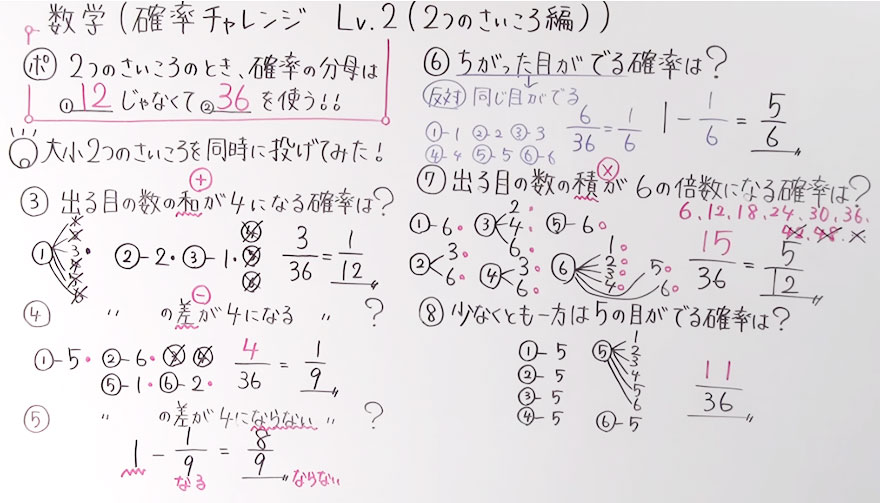 数学(確率チャレンジ Lv.2(2つのさいころ編))
㋭ 2つのさいころのとき、確率の分母は
①12じゃなくて②36を使う!!
大小2つのさいころを同時に投げてみた!
+
③ 出る目の数の和が4になる確率は?
① 3 ②-2 ③-1 3/36=1/12
-
④ 〃 の差が4になる 〃 ?
①-5 ②-6 ③ ④ 4/36=1/9
⑤-1 ⑥-2
⑤ 〃 の差が4にならない 〃 ?
1-1/9=8/9
なる ならない
⑥ ちがった目がでる確率は?
反対 同じ目がでる
①-1 ②-2 ③-3 6/36=1/6 1-1/6=5/6
④-4 ⑤-5 ⑥-6
×
⑦ 出る目の数の積が6の倍数になる確率は?
6、12、18、24、30、36、
42、48、×
①-6 ③ 2 4 6 ⑤-6
② 3 6 ④ 3 6 ⑥ 1 2 3 4 5 6 15/36=5/12
⑧ 少なくとも一方は5の目がでる確率は?
①-5 ⑤ 1 2 3 4 5 6
②-5 11/36
③-5
④-5 ⑥-5